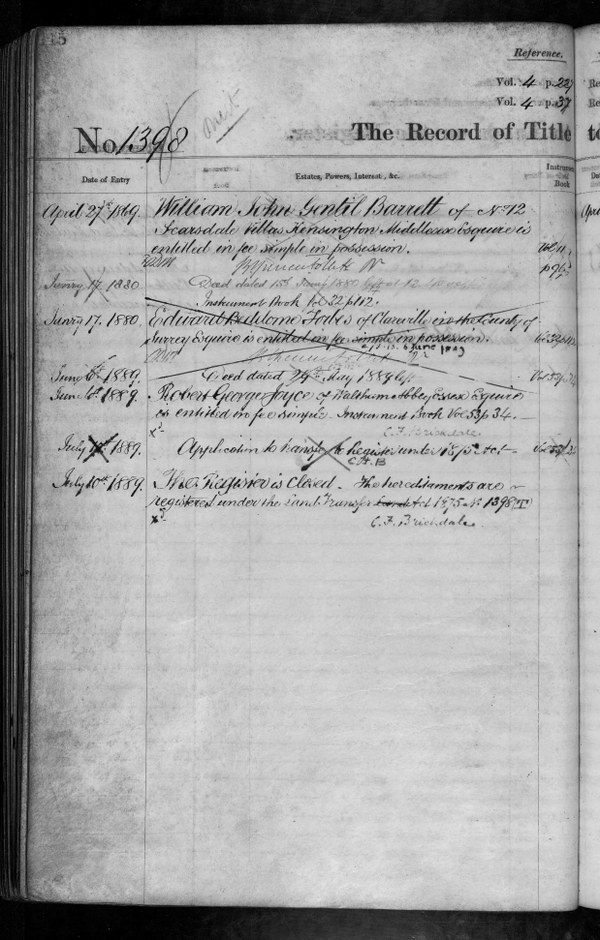 Reference.
Vol. 4 p. 227
Vol. 4 p. 37
No. 1398
The Record of Title
Date of Entry
Estates, Powers, Interest, &c.
Instrument
Book
April 27th 1869.
William John Gentil Barrett of No 12
Scarsdale Villas Kensington Middlesex Esquire is
entitled in fee simple in possession.
Janry 17. 1880
Deed dated 15th Janry 1880
Instrument Book Vol 32 p 112.
Janry 17. 1880.
Edward Beddome Forbes of Clareville in the County of
Surrey Esquire is entitled in fee simple in possession.
June 6th 1889.
Deed dated 24th May 1889
June 6th 1889.
Robert George Joyce of Waltham Abbey Essex Esquire
is entitled in fee simple. Instrument Book Vol 53 p 34.
C. F. Brickdale
July 1889.
Application to transfer to Register under 1875 Act
July 10th 1889.
The Register is closed. The hereditaments are
registered under the Land Transfer Land Act 1875 No 1398
C. F. Brickdale.